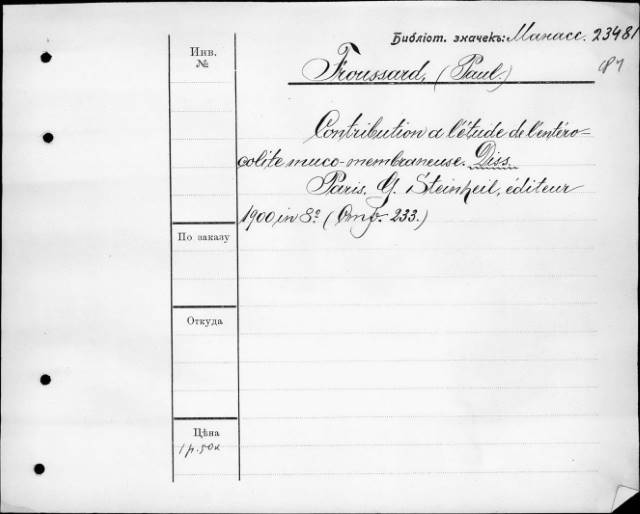 Библіот. значек: Манасс. 23481
Инв.
№
Froussard, (Paul.)
Contribution a l'étude de l'entéro-
colite muco-membraneuse. Diss.
Paris, G. Steinheil, éditeur
1900 in 8° (Стр. 233.)
По заказу
Откуда
Цѣна
1 р. 50 к